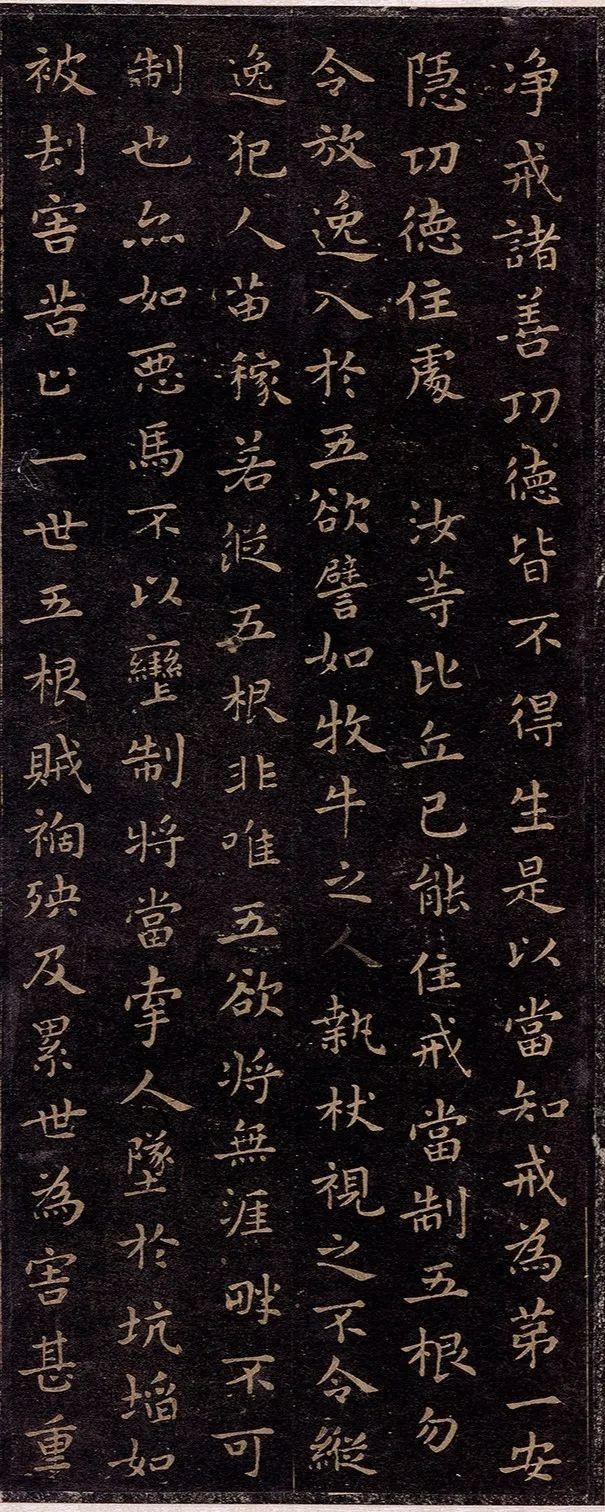 净戒諸善功德皆不得生是以當知戒為苐一安
隱功德住處　汝等比丘已能住戒當制五根勿
令放逸入於五欲譬如牧牛之人執杖視之不令縱
逸犯人苗稼若縱五根非唯五欲將無涯畔不可
制也亦如惡馬不以轡制將當牽人墜於坑埳如
被刦害苦止一世五根賊禍殃及累世為害甚重